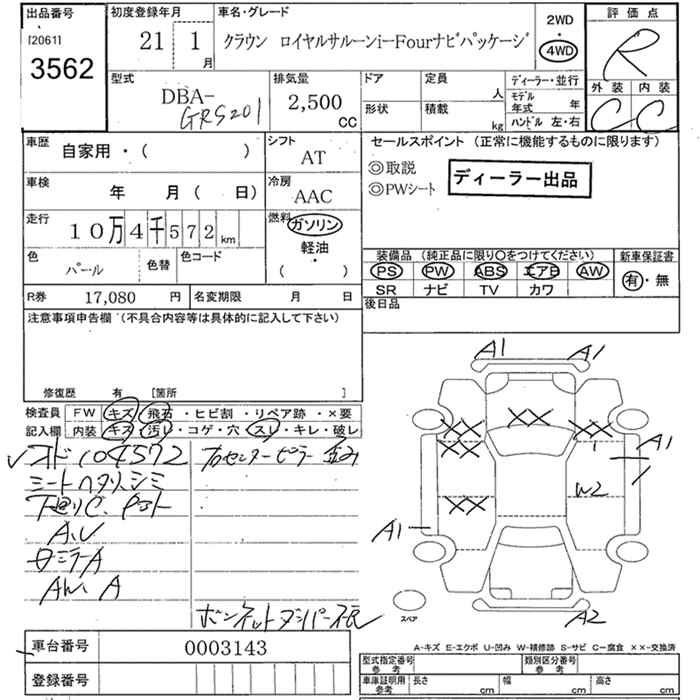 出品番号
[2061]
3562
初度登録年月
21 1
月
車名・グレード
クラウン ロイヤルサルーンi-Fourナビパッケージ
2WD
・
4WD
評価点
R
外装 内装
C C
型式
DBA-
GRS201
排気量
2,500
CC
ドア
形状
定員
人
積載
kg
ディーラー・並行
モデル年式 年
ハンドル 左・右
車歴
自家用・( )
シフト
AT
車検
年 月( 日)
冷房
AAC
走行
10万4千572km
燃料
ガソリン
軽油
・
( )
色
パール
色替
色コード
R券 17,080 円
名変期限 月 日
セールスポイント (正常に機能するものに限ります)
◎取説
◎PWシート
ディーラー出品
装備品 (純正品に限り○をつけてください)
PS PW ABS エアB AW
SR ナビ TV カワ
新車保証書
有・無
後日品
注意事項申告欄 (不具合内容等は具体的に記入して下さい)
修復歴 有 [箇所 ]
検査員
記入欄
FW キズ・飛石・ヒビ割・リペア跡・×要
内装 キズ・汚レ・コゲ・穴・スレ・キレ・破レ
104572
右センターピラー
シートヘタリ、シミ
A、U
ミラーA
AW A
ボンネットダンパー
車台番号 0003143
登録番号
A1 A1
XX
XX XX
XX
A1
W2
XX
A1
A2
スペア
A-キズ E-エクボ U-凹み W-補修跡 S-サビ C-腐食 ××-交換済
型式指定番号
参考
類別区分番号
参考
車庫証明用
参考
長さ cm
幅 cm
高さ cm